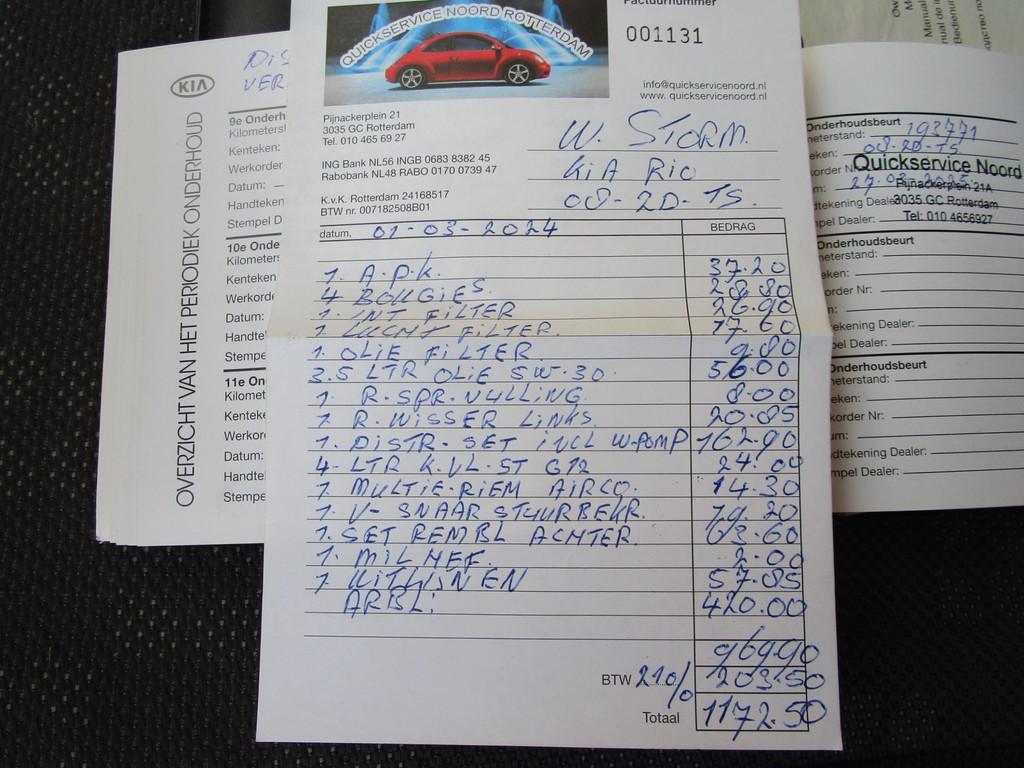 QUICKSERVICE NOORD ROTTERDAM
Factuurnummer
001131
info@quickservicenoord.nl
www. quickservicenoord.nl
Pijnackerplein 21
3035 GC Rotterdam
Tel. 010 465 69 27
ING Bank NL56 INGB 0683 8382 45
Rabobank NL48 RABO 0170 0739 47
K.v.K. Rotterdam 24168517
BTW nr. 007182508B01
W. STORM.
KIA RIO
08-ZD-TS.
datum, 01-03-2024
BEDRAG
1. A.P.K. 37.20
4 BOUGIES. 28.80
1. INT FILTER 26.90
1 LUCHT FILTER. 17.60
1. OLIE FILTER 9.80
3.5 LTR OLIE 5W-30. 56.00
1. R-SPR-VULLING 8.00
1 R-WISSER LINKS. 20.85
1. DISTR-SET INCL W-POMP 162.90
4- LTR K.VL-ST G12 24.00
1. MULTIE-RIEM AIRCO. 14.30
1. V-SNAAR STUURBEKR. 19.20
1. SET REMBL ACHTER. 63.60
1. MIL HEF. 2.00
1 UITLIJNEN 57.85
ARBL: 420.00
969.90
BTW 21% 203.50
Totaal 1172.50
KIA
OVERZICHT VAN HET PERIODIEK ONDERHOUD
DIS
VER
9e Onderh
Kilometerst
Kenteken:
Werkorder
Datum:
Handteken
Stempel D
10e Onde
Kilometers
Kenteken
Werkorde
Datum:
Handte
Stempe
11e On
Kilomet
Kenteke
Werkor
Datum:
Handte
Stempe
Onderhoudsbeurt
neterstand: 193771
eken: 08-ZD-TS
order Nr
m: 27-03-2025
dtekening Deale
pel Dealer:
Quickservice Noord
Pijnackerplein 21A
3035 GC Rotterdam
Tel: 010 4656927
Onderhoudsbeurt
neterstand:
eken:
order Nr:
um:
tekening Dealer:
pel Dealer:
Onderhoudsbeurt
neterstand:
eken:
korder Nr:
um:
dtekening Dealer:
mpel Dealer:
Ow
Manual
nual de
Bedienu